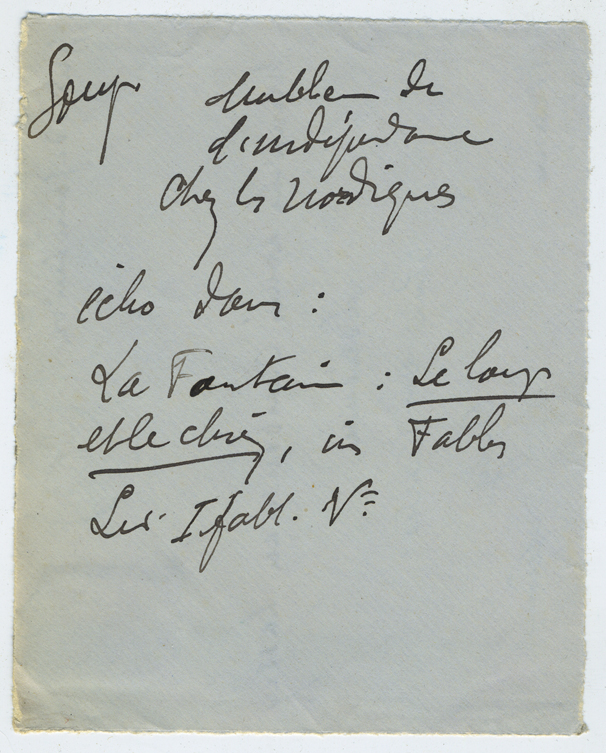 Loup emblème de
d'indépendance
chez les nordiques
écho dans :
La Fontaine : Le loup
et le chien, in Fables
Liv. I fabl. V